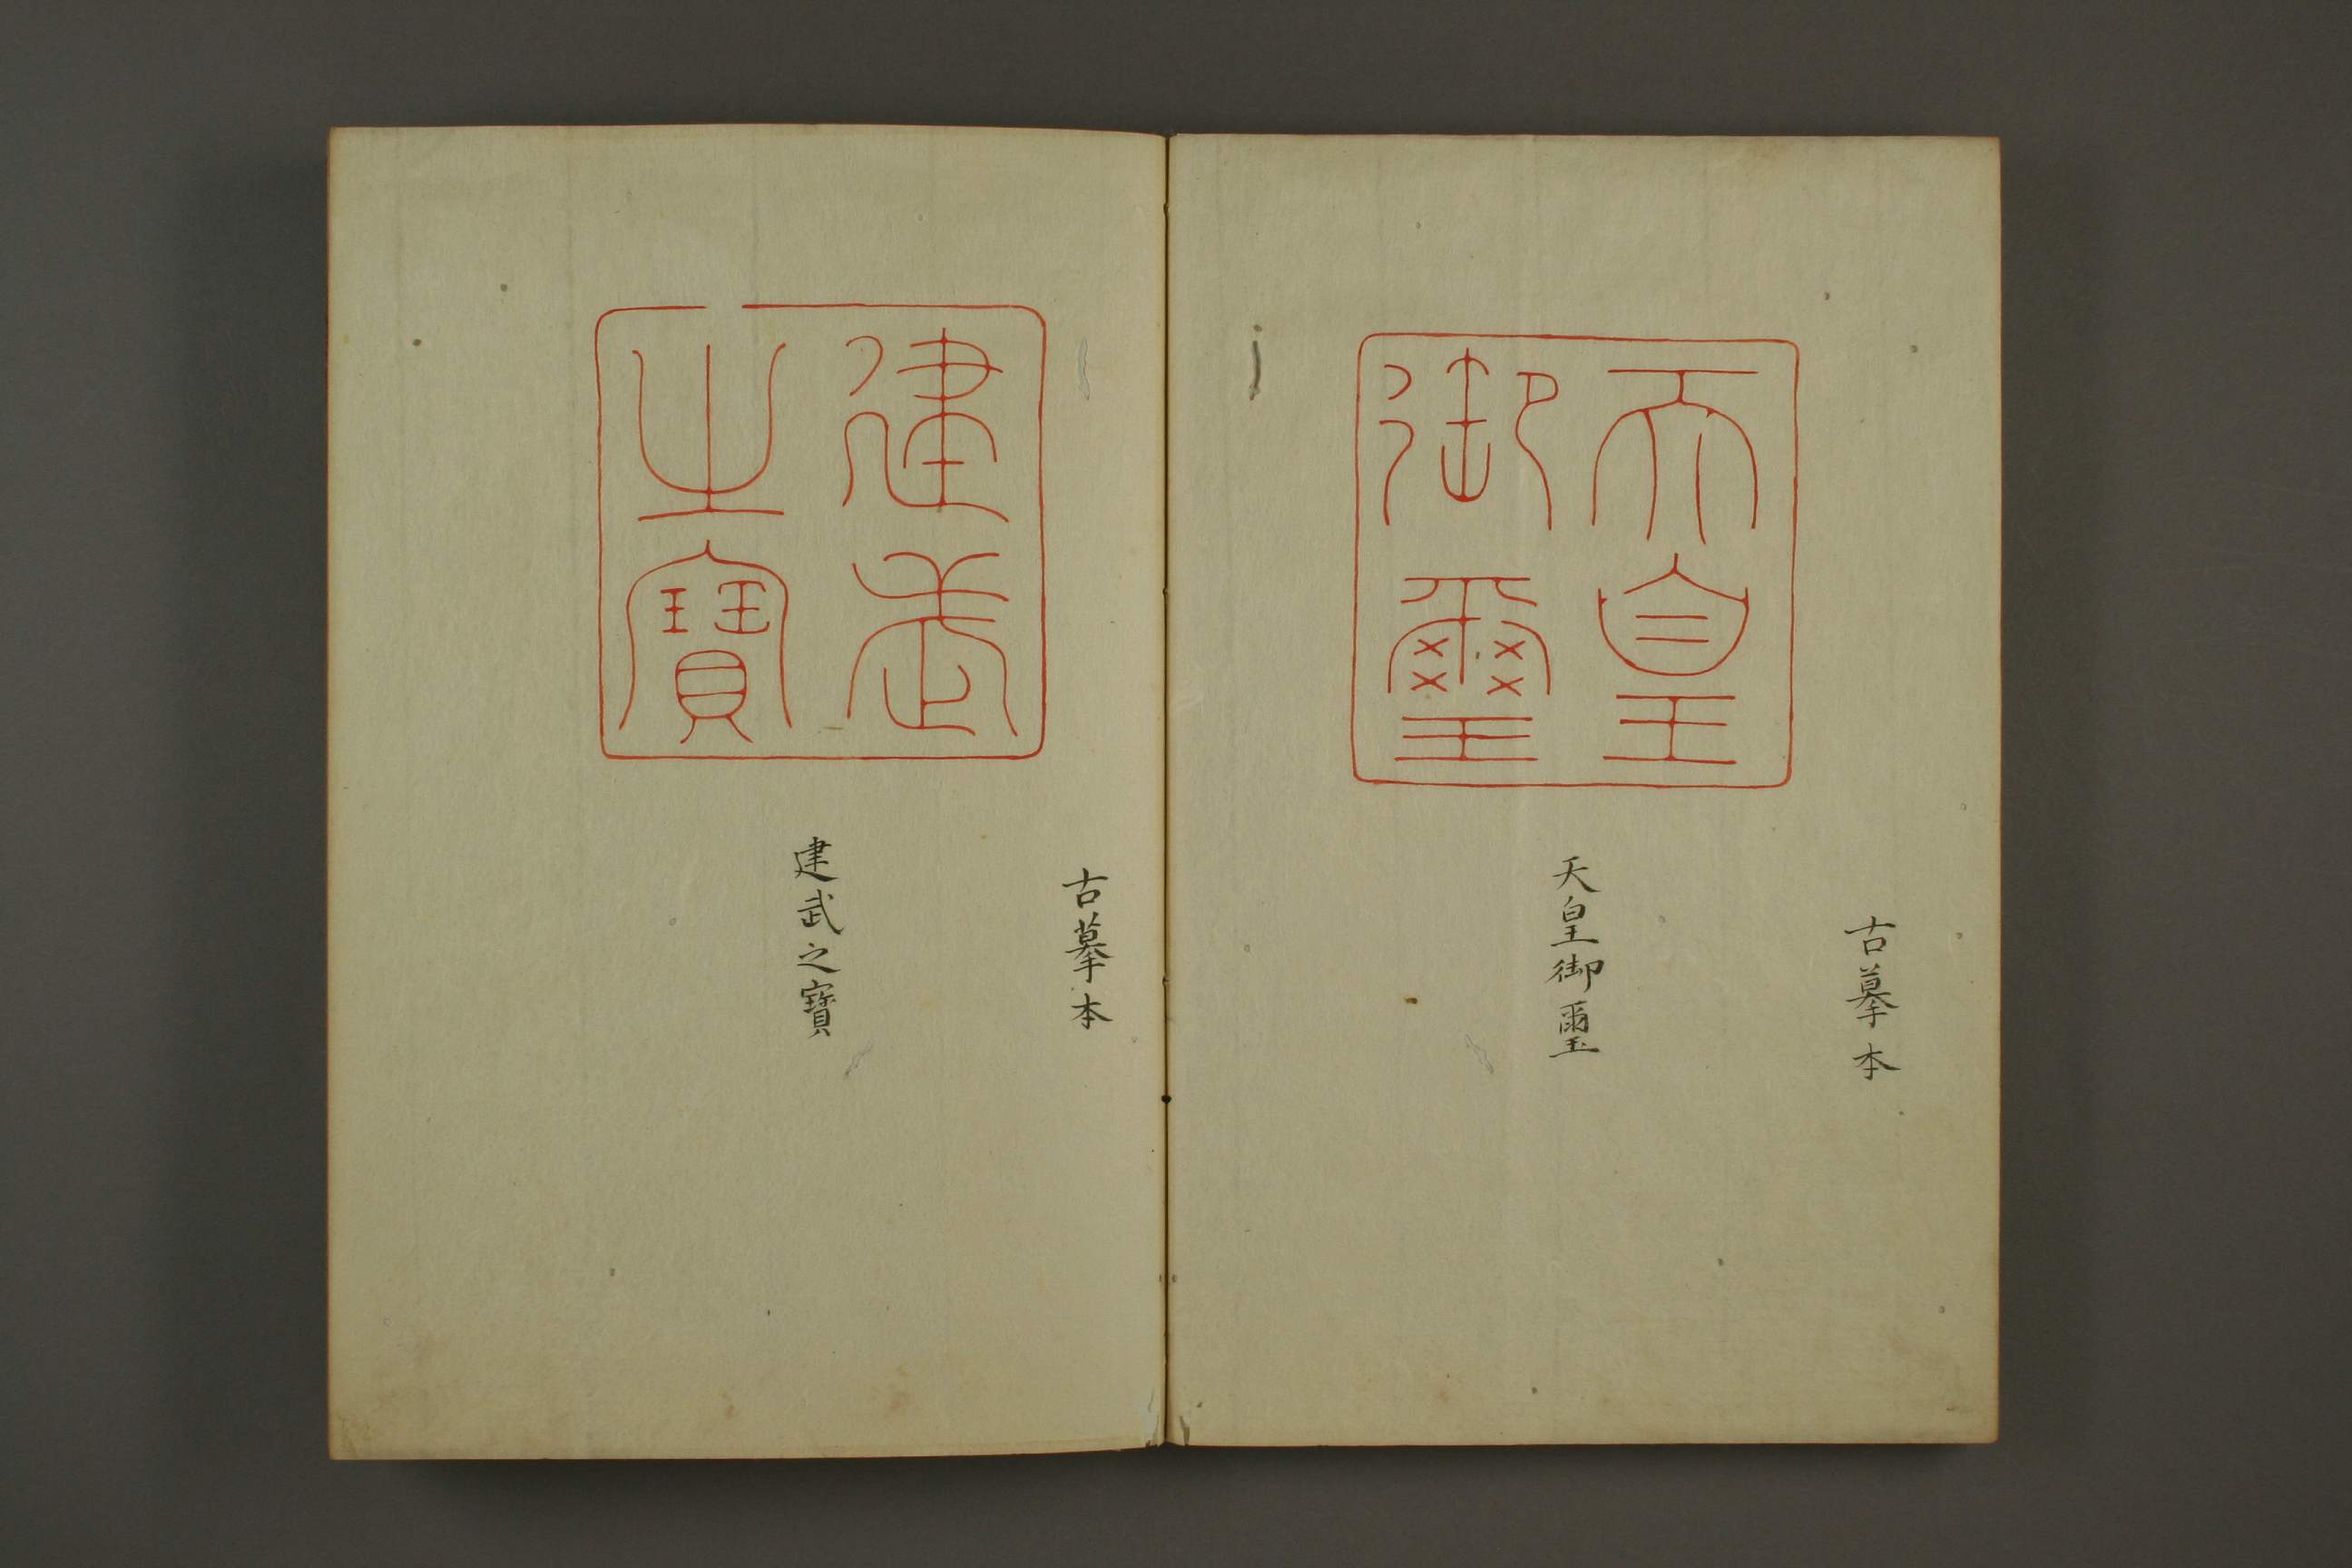 古摹本
天皇
御璽
天皇御璽
古摹本
建武
之寶
建武之寶